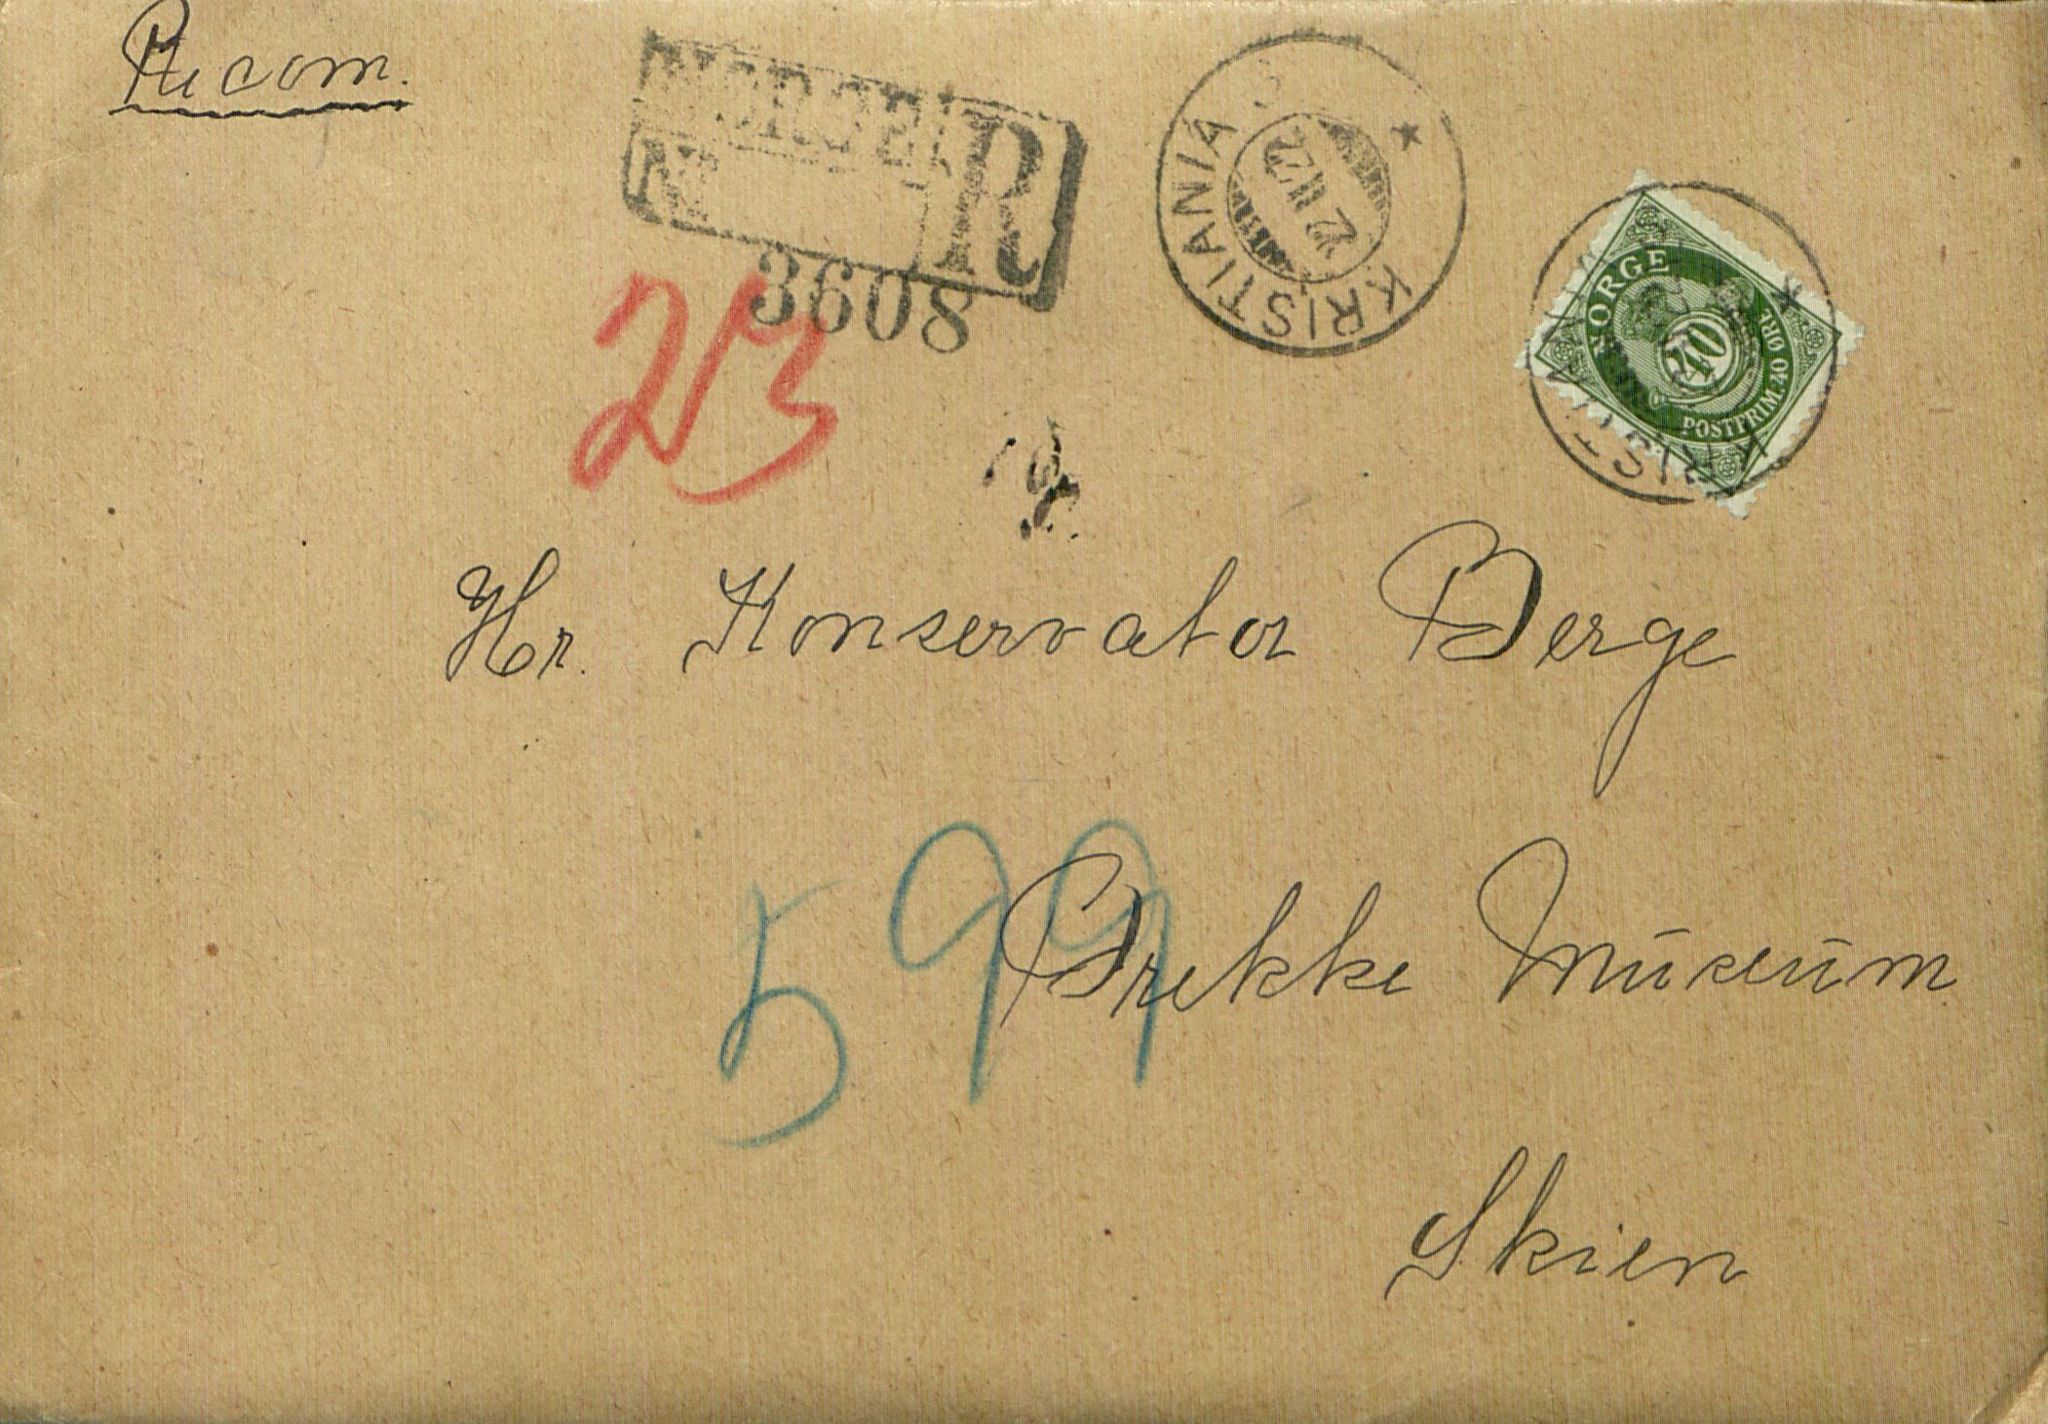 Recom.
NORGE R
No
3608
KRISTIANIA S
2 II 22
23
NORGE
40
POSTFRIM. 40 ØRE
Hr. Konservator Berge
599
Brekke Museum
Skien